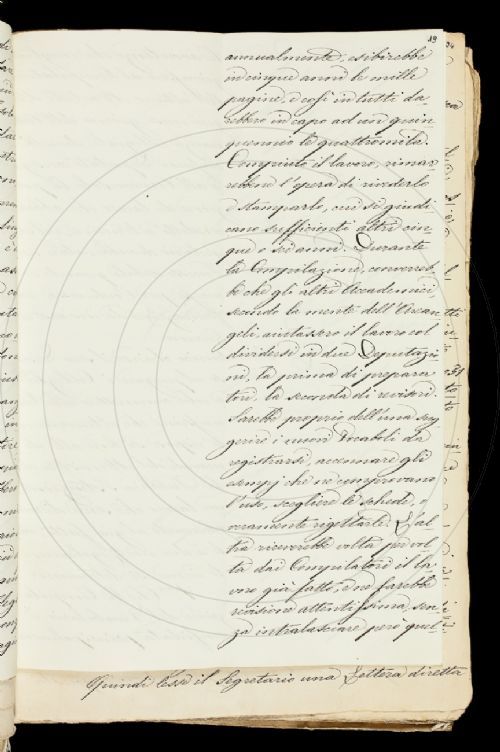 19
annualmente, esibirebbe
in cinque anni le mille
pagine, e così in tutti da-
rebbero in capo ad un quin
quennio le quattromila.
Compiuto il lavoro, rimar-
rebbe l'opera di rivederlo
e stamparlo, cui si giudi-
cano sufficienti altri cin-
que o sei anni. Durante
la Compilazione, converreb-
be che gli altri Accademici,
secondo la mente dell'Arcan
geli, aiutassero il lavoro col
dividersi in due Deputazio
ni, la prima di prepara
tori, la seconda di revisori.
Sarebbe proprio dell'una sug
gerire i nuovi Vocaboli da
registrarsi, accennare gli
esempj che ne comprovano
l'uso, scegliere le schede, o
veramente rigettarle. L'al-
tra riceverebbe volta per vol-
ta dai Compilatori il la-
voro già fatto, e ne farebbe
revisione attentissima, sen-
za intralasciare però quel-
Quindi lesse il Segretario una Lettera diretta